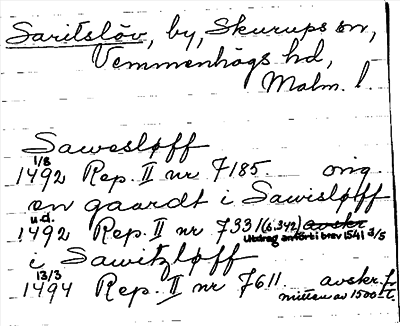 Saritslöv, by, Skurups sn,
Vemmenhögs hd,
Malm. l.
Sawesløff
1/8
1492 Rep. II nr 7185. orig.
en gaardt i Sawisløff
u.d.
1492 Rep. II nr 7331 (6:342) avskr.
Utdrag anfört i brev 1541 3/5
i Sawitzløff
13/3
1494 Rep. II nr 7611 avskr. fr.
mitten av 1500-t.